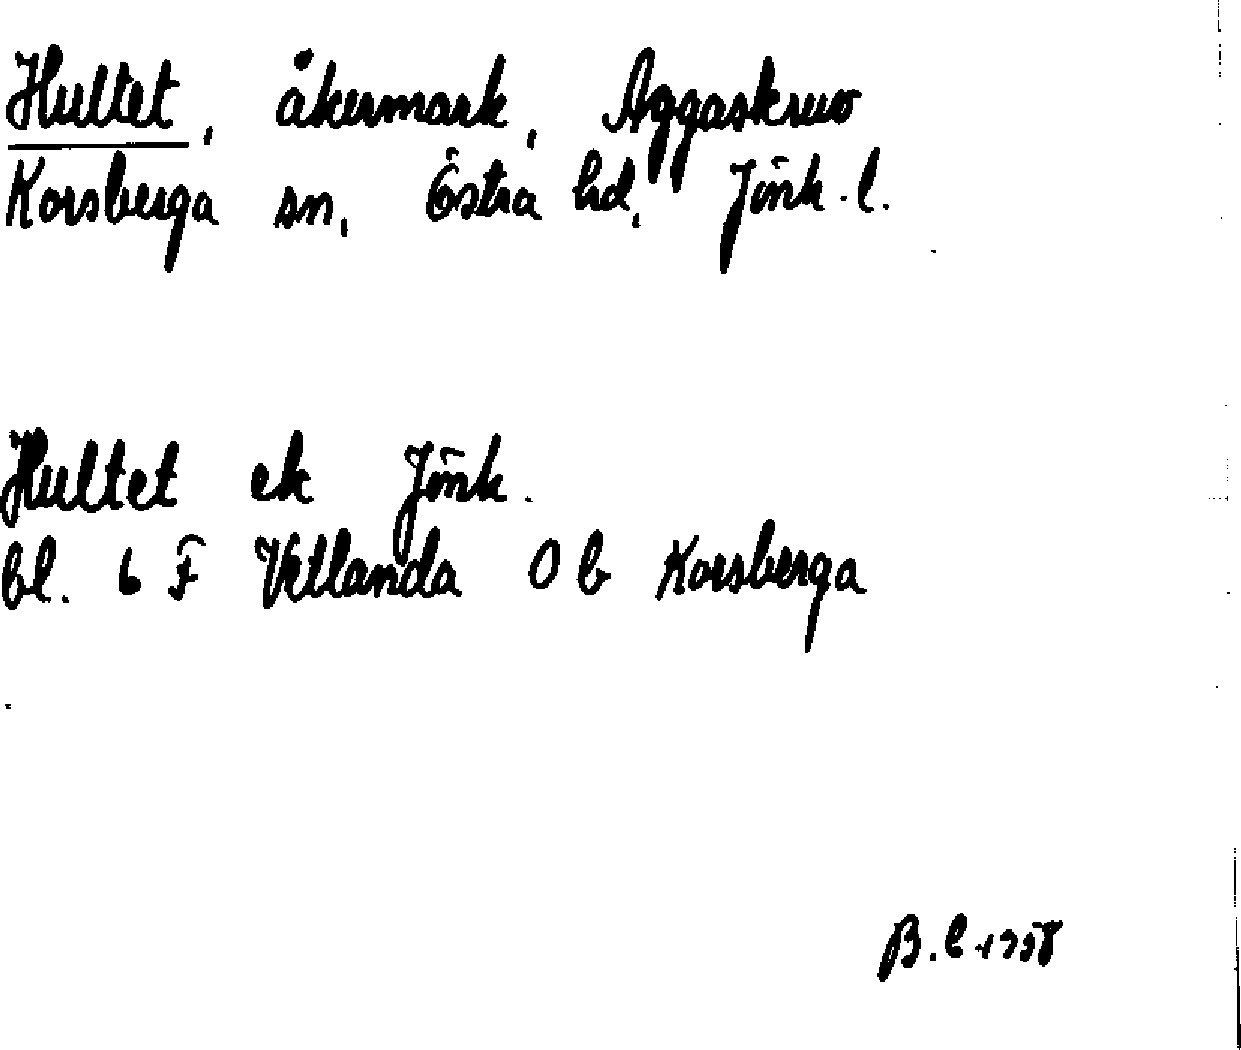 Hultet, åkermark, Aggaskruv
Korsberga sn, Östra hd, Jönk. l.
Hultet ek Jönk.
bl. 6 F Vetlanda 0 b Korsberga